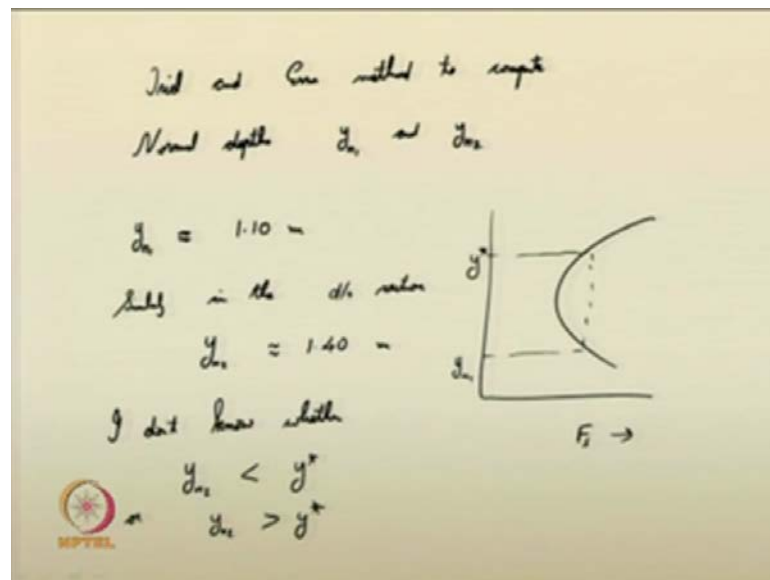 Trial and Error method to compute
Normal depths yn₁ and yn₂
yn₁ ≈ 1.10 m
Similarly in the d/s section
yn₂ ≈ 1.40 m
I don't know whether
yn₂ < y*
or yn₂ > y*
y*
yn₁
Fs →
NPTEL